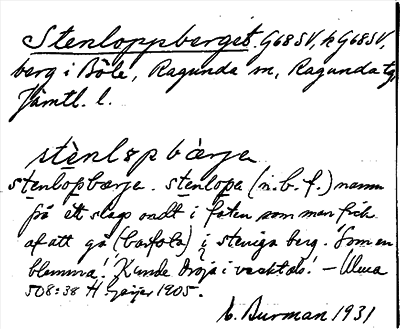 Stenloppberget. G68SV, k G68SV,
berg i Böle, Ragunda sn, Ragunda tg,
Jämtl. l.
stènlɷpbærje
stenlopbærje. stenlopa (n.b.f.) namn
på ett slags ondt i foten som man fick
af att gå (barfota) i steniga berg. Som en
blemma! Kunde dröja i veckotals! — Ulvsa
508:38 H. Geijer 1905.
C. Burman 1931